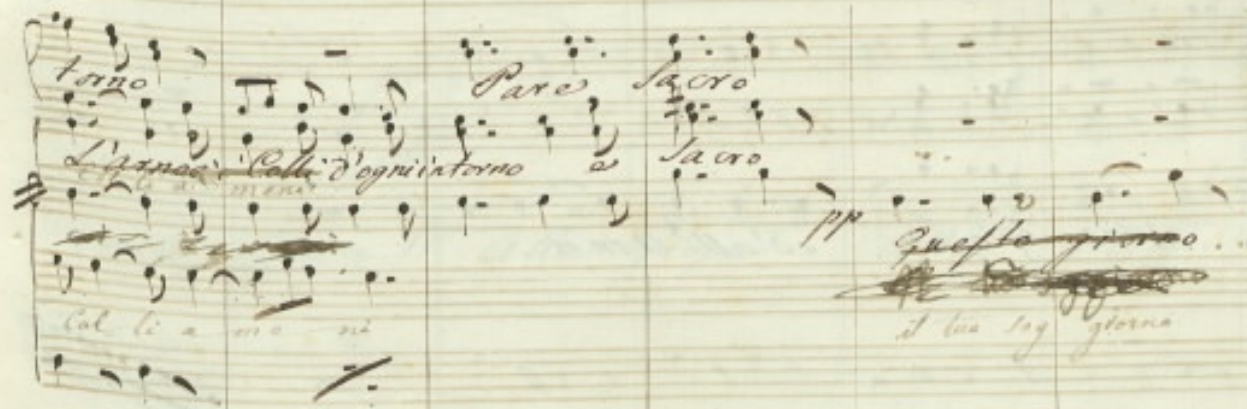 torno Pare sacro
L'armoi i Colli d'ogni intorno e sacro
li a meni
pp Questo giorno
Col li a me ni il tuo sog giorno